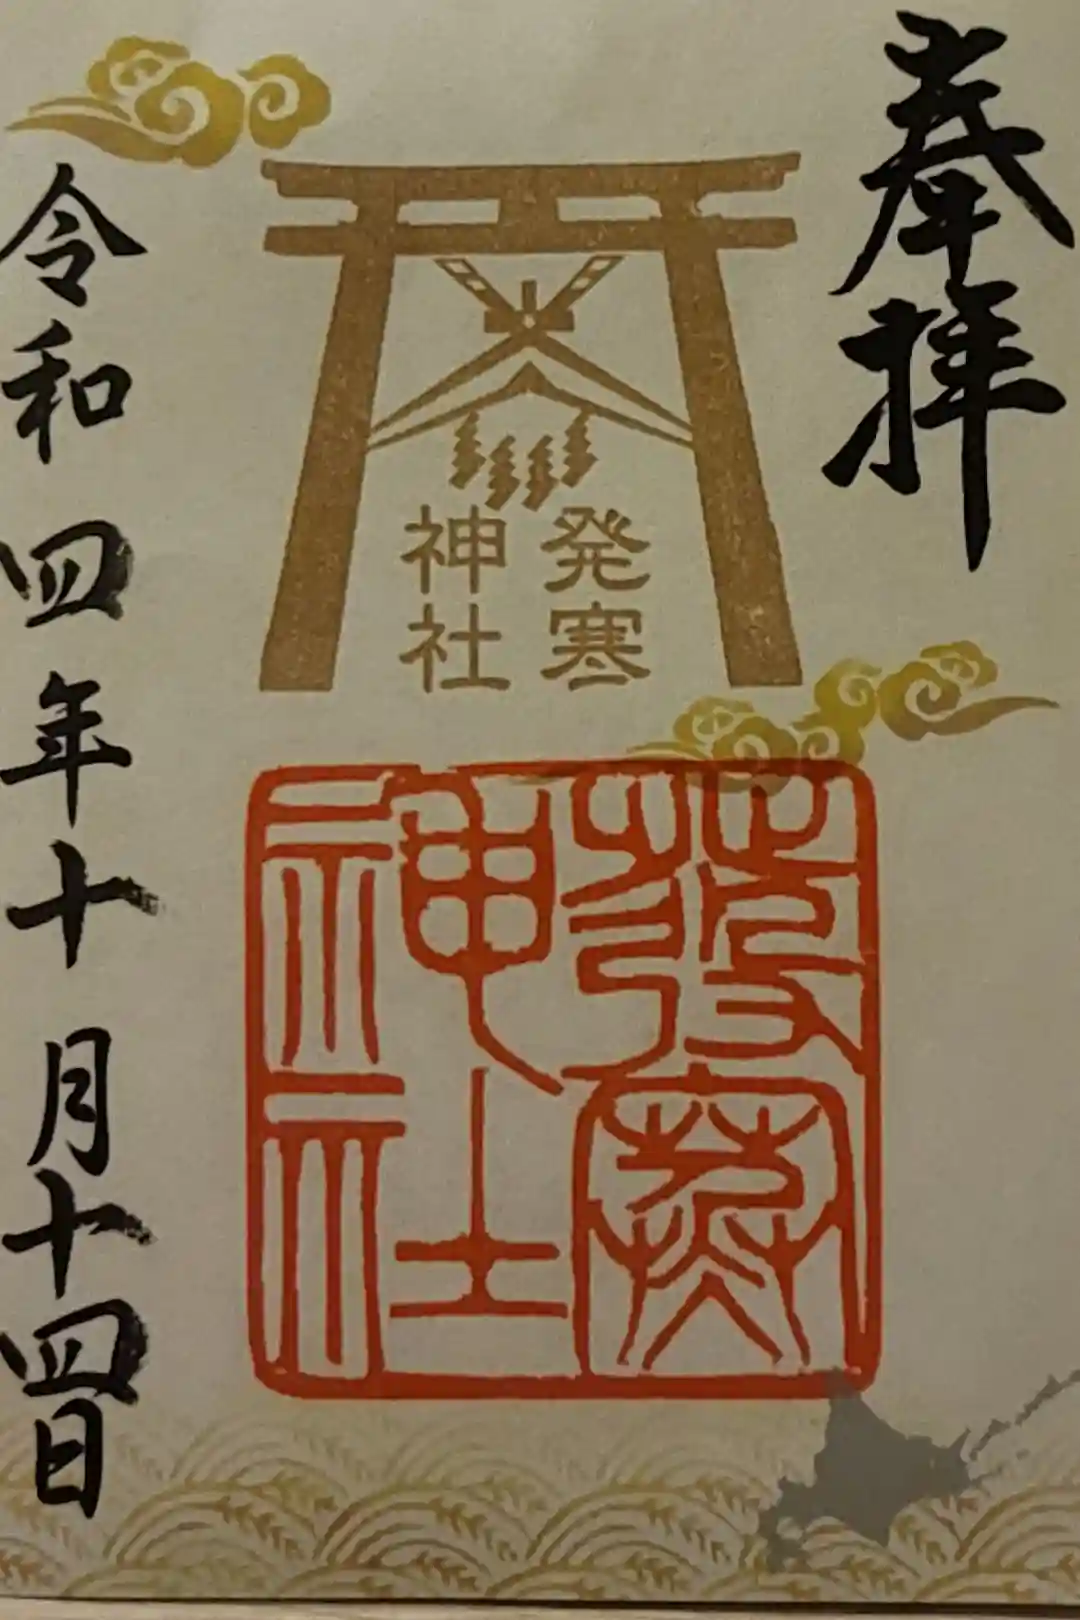 奉拝
発寒
神社
發寒
神社
令和四年十月十四日